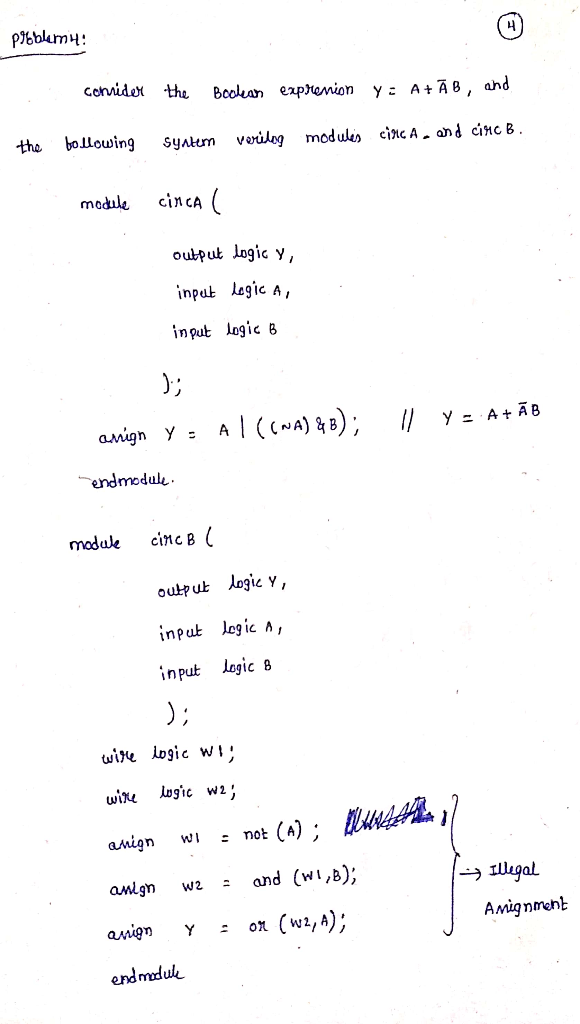 4
Problem 4:
consider the Boolean expression Y = A + ĀB, and
the following system verilog modules circA and circB.
module circA (
output logic Y,
input logic A,
input logic B
);
assign Y = A | ((~A) & B); // Y = A + ĀB
endmodule.
module circB (
output logic Y,
input logic A,
input logic B
);
wire logic W1;
wire logic W2;
assign W1 = not (A);
assign W2 = and (W1,B);
assign Y = or (W2,A);
→ Illegal
Assignment
endmodule